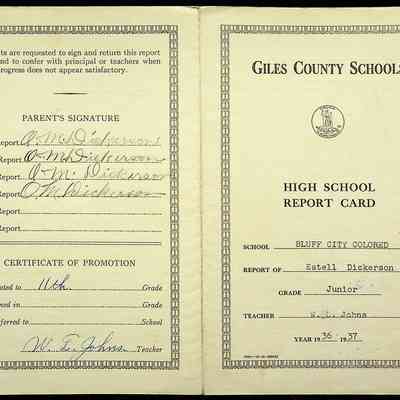 ts are requested to sign and return this report
nd to confer with principal or teachers when
rogress does not appear satisfactory.
PARENT'S SIGNATURE
Report O. M. Dickerson
Report O. M. Dickerson
Report O. M. Dickerson
Report O M Dickerson
Report
Report
CERTIFICATE OF PROMOTION
oted to 11th Grade
ned in Grade
ferred to School
W. L. Johns Teacher
GILES COUNTY SCHOOLS
HIGH SCHOOL
REPORT CARD
SCHOOL BLUFF CITY COLORED
REPORT OF Estell Dickerson
GRADE Junior
TEACHER W. L. Johns
YEAR 1936 1937